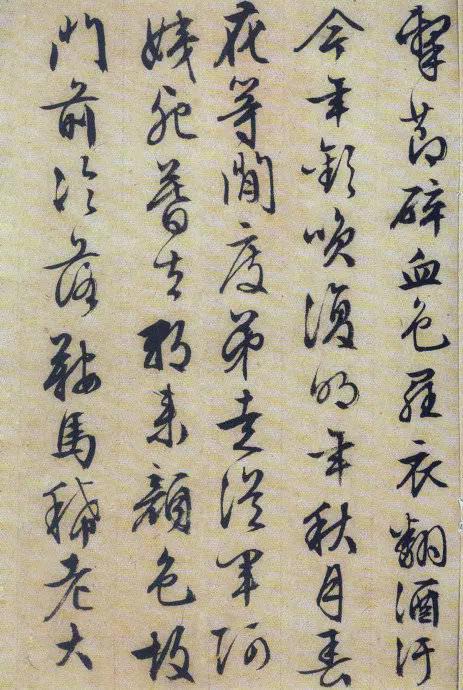 擊節碎血色羅衣翻酒汙
今年歡咲復明年秋月春
風等閒度弟走從軍阿
姨死暮去朝來顏色故
門前冷落鞍馬稀老大